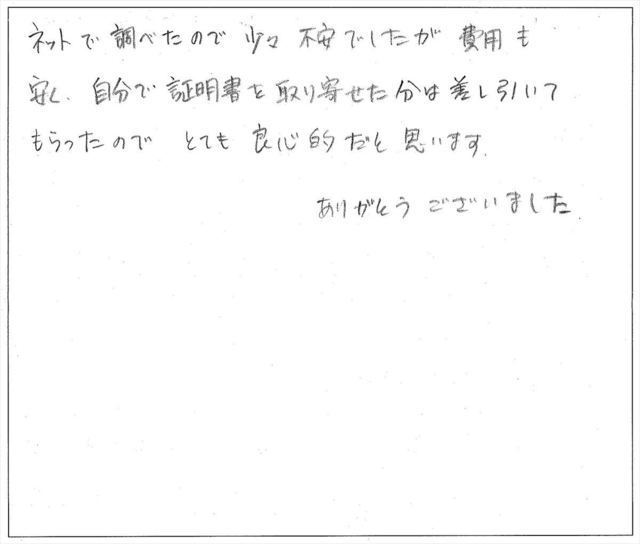 ネットで調べたので少々不安でしたが費用も
安く、自分で証明書を取り寄せた分は差し引いて
もらったので とても良心的だと思います。
ありがとうございました。